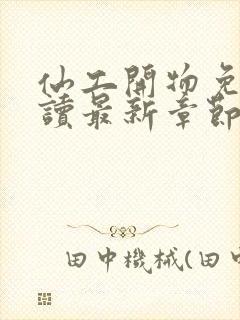 仙工開物免
讀最新章節
田中機械(田中